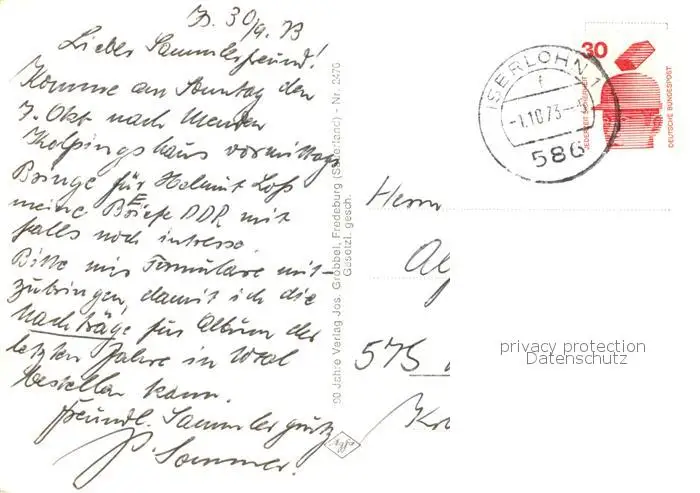 30/9.73
Lieber Sammlerfreund!
Komme am Sonntag den
7. Okt nach Menden
Kolpingshaus vormittags
Bringe für Helmut
meine Briefe DDR mit
falls noch intresse.
Bitte mir Formulare mit-
zubringen, damit ich die
nachträge für Album der
letzten Jahre in
bestellen kann.
freundl. Sammlergruß
P. Sommer.
90 Jahre Verlag Jos. Grobbel, Fredeburg (Sauerland) - Nr. 2470
Gesetzl. gesch.
ISERLOHN 1
f
-1.10.73-
586
30
JEDERZEIT SICHERHEIT
DEUTSCHE BUNDESPOST
Herrn
575
privacy protection
Datenschutz